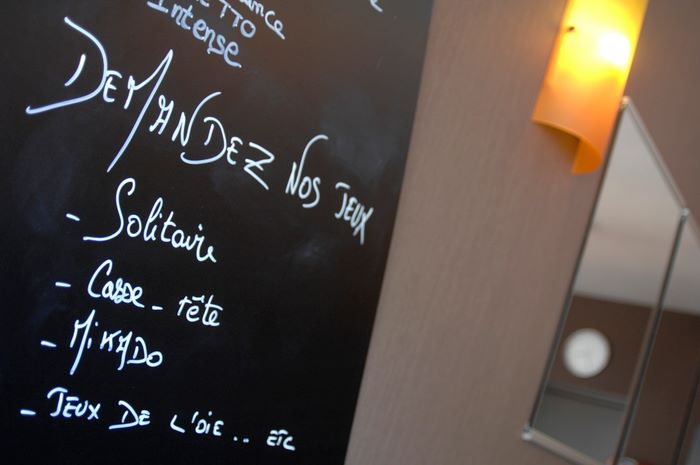 TTO
Intense
DEMANDEZ NOS JEUX
- Solitaire
- Casse-tête
- MiKADO
- JEUX DE L'OIE.. ETC